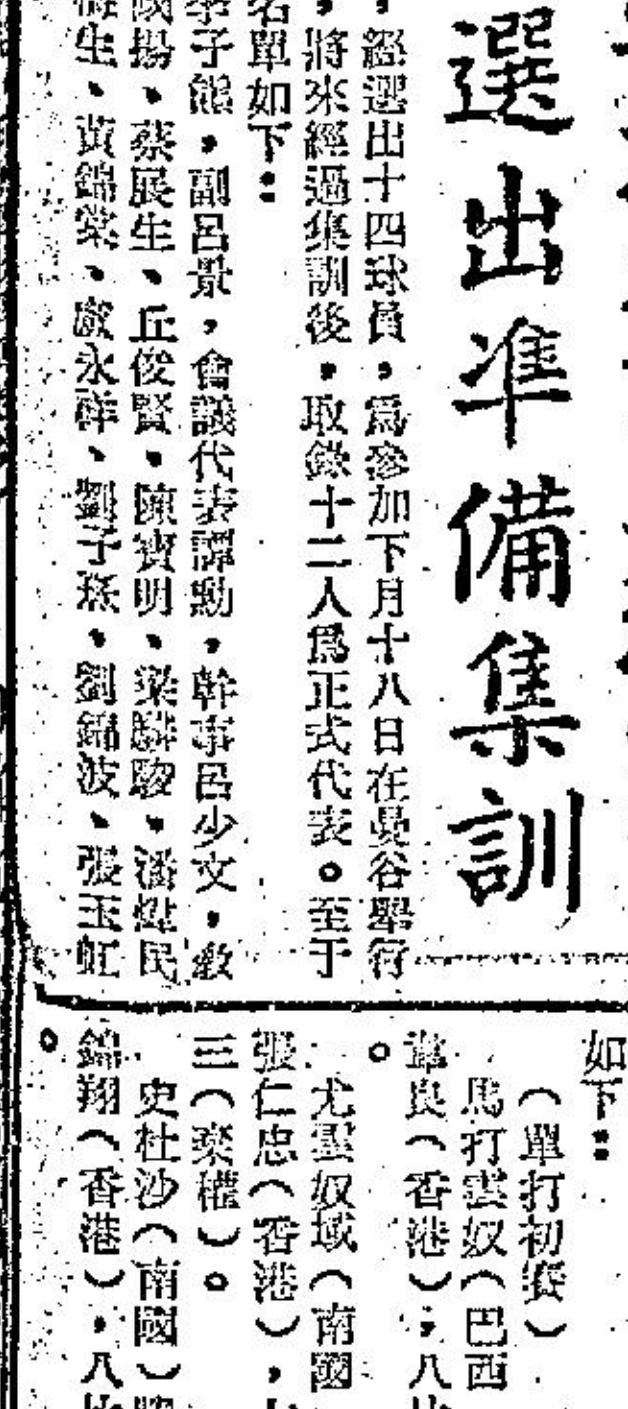 選出準備集訓
，經選出十四球員，爲參加下月十八日在曼谷舉行
，將來經過集訓後，取錄十二人爲正式代表。至于
名單如下：
李子熊，副呂景，會議代表譚勳，幹事呂少文，教
國揚、蔡展生、丘俊賢、陳寶明、梁驊駿、潘焜民
生、黃錦棠、永祥、劉子燕、劉錦波、張玉虹
如下：
（單打初賽）
馬打雲奴（巴西
韋良（香港），八
。
尤墨奴域（南國
張仁忠（香港），
三（棄權）。
史杜沙（南國）
錦翔（香港），八
。